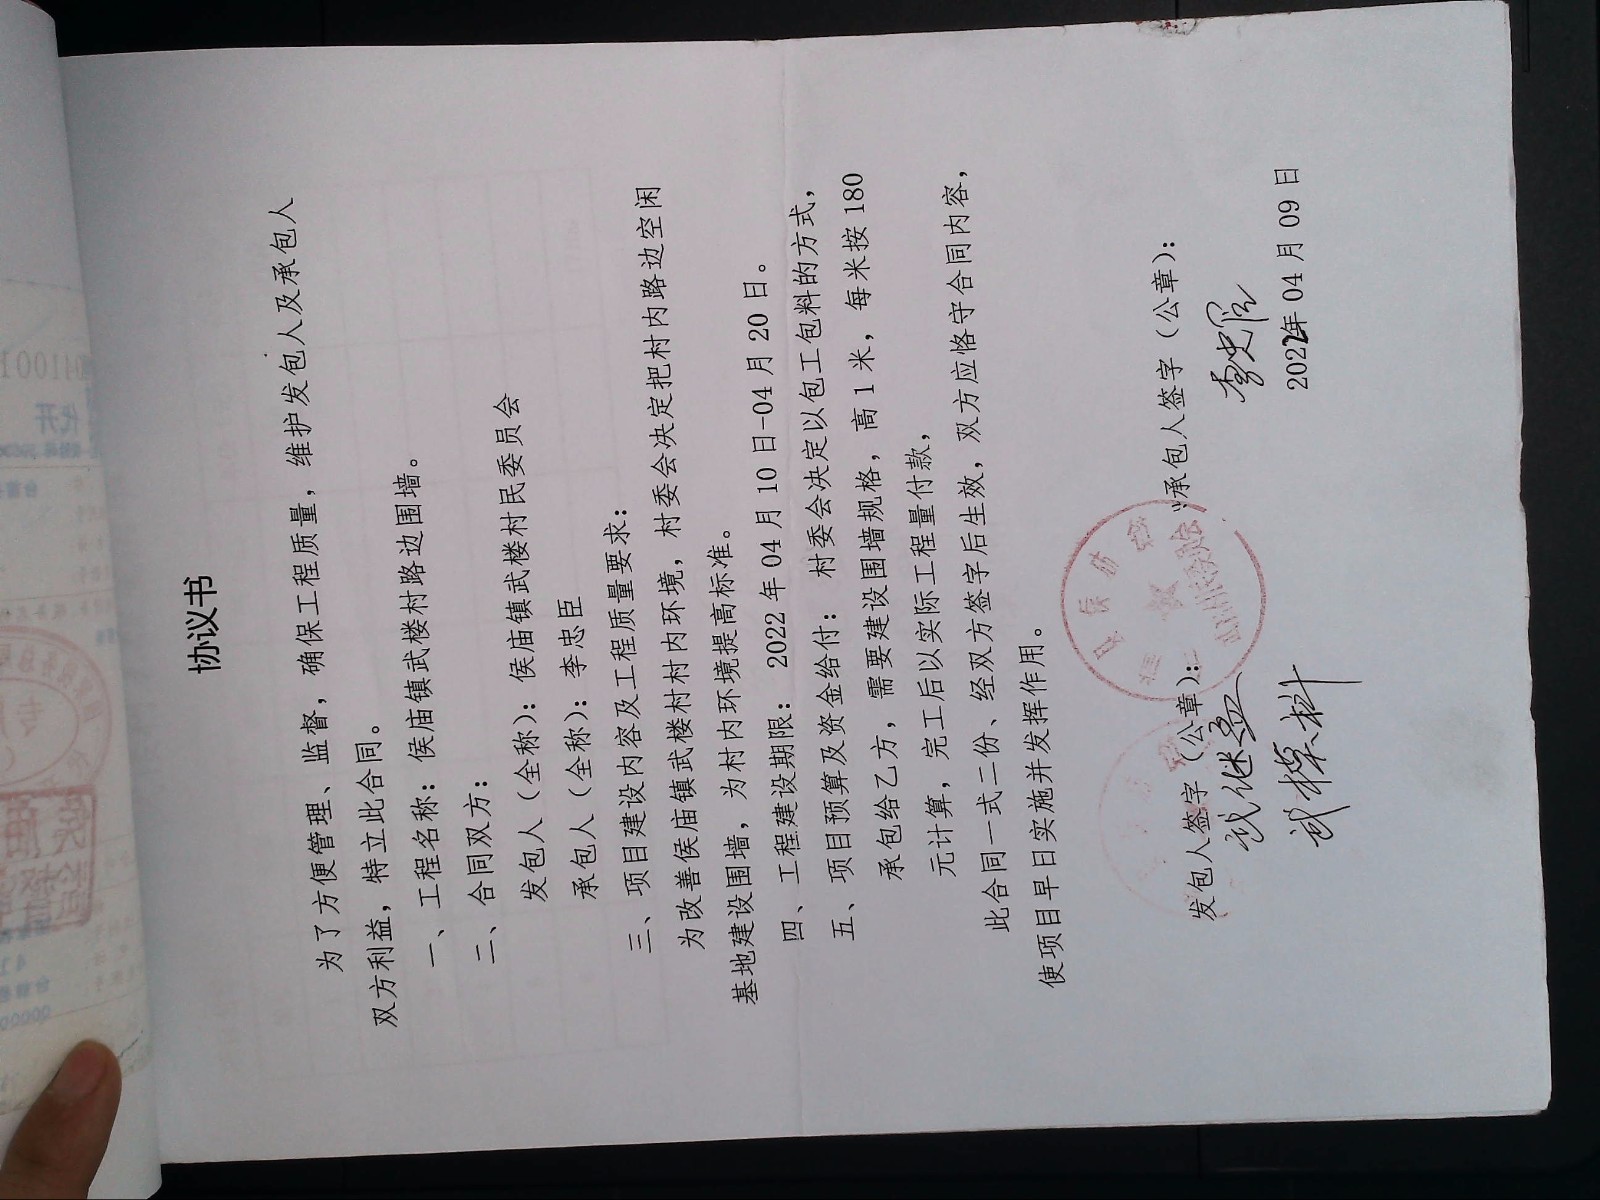 协议书
为了方便管理、监督，确保工程质量，维护发包人及承包人
双方利益，特立此合同。
一、工程名称：侯庙镇武楼村路边围墙。
二、合同双方：
发包人（全称）：侯庙镇武楼村民委员会
承包人（全称）：李忠臣
三、项目建设内容及工程质量要求：
为改善侯庙镇武楼村村内环境，村委会决定把村内路边空闲
基地建设围墙，为村内环境提高标准。
四、工程建设期限：2022年04月10日-04月20日。
五、项目预算及资金给付：村委会决定以包工包料的方式，
承包给乙方，需要建设围墙规格，高1米，每米按180
元计算，完工后以实际工程量付款，
此合同一式二份、经双方签字后生效，双方应恪守合同内容，
使项目早日实施并发挥作用。
发包人签字（公章）： 承包人签字（公章）：
李忠臣
2022年04月09日